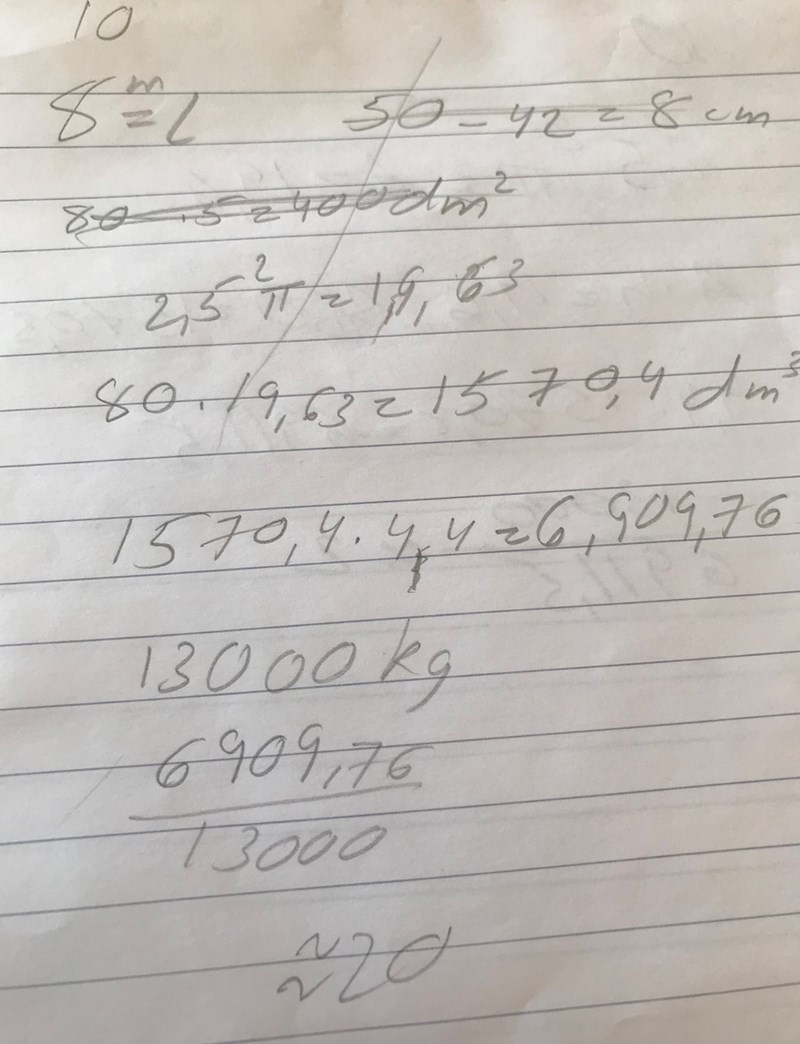 10
8 m = l 50 - 42 = 8 cm
80 · 5 = 400 dm²
2,5² π = 19,63
80 · 19,63 = 1570,4 dm³
1570,4 · 4,4 = 6,909,76
13000 kg
6909,76
13000
≈ 20